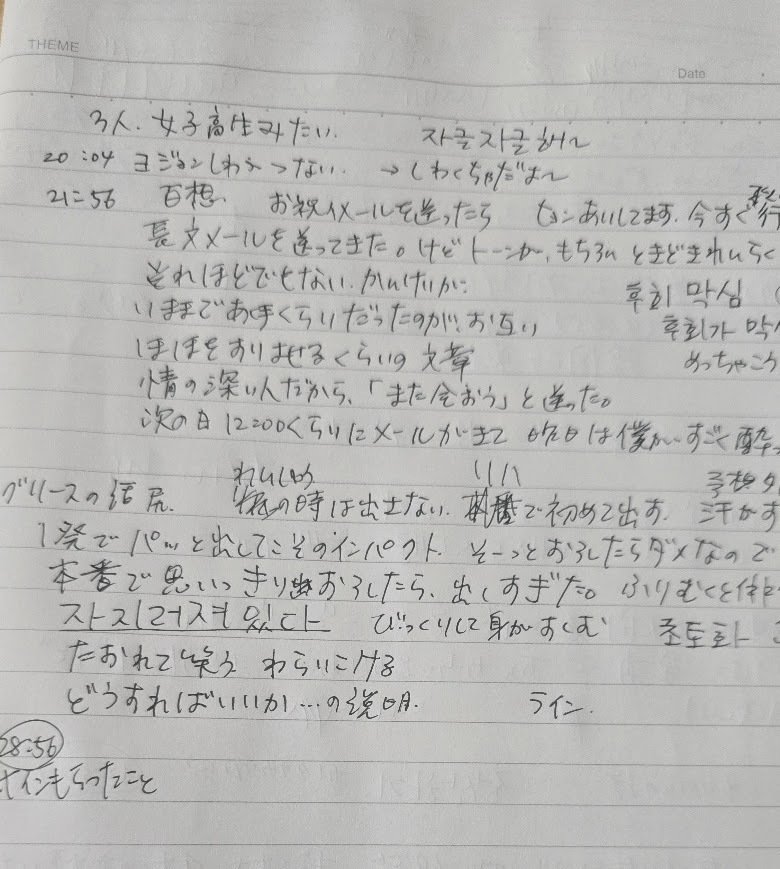 THEME
Date
3人、女子高生みたい。 자글자글해~
20:04 ヨジョンしわ つない。 → しわくちゃだよ~
21:56 百想。 お祝いメールを送ったら あいしてます。今すぐ
長文メールを送ってきた。けどトーンが、もちろん ときどき
それほどでもない。かんけいが。 후회 막심
いままであ くらいだったのが、お互い 후회가 막
ほほをすりよせるくらいの文章 めっちゃこう
情の深い人だから、「また会おう」と送った。
次の日12:00くらいにメールがきて 昨日は僕がすごく酔
グリースの話 の時は出さない。本番で初めて出す。 汗がす
1発でパッと出してこそのインパクト。そーっとおろしたらダメなので
本番で思いっきりおろしたら、出しすぎた。ふりむくと
자지러져 있다 びっくりして身がすくむ 초토화
たおれて笑う わらいこける
どうすればいいか…の説明。 ライン。
28:56
インもらったこと